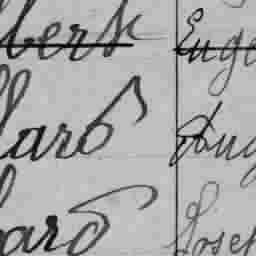 lbert Euge
lard Aug
ard Josep